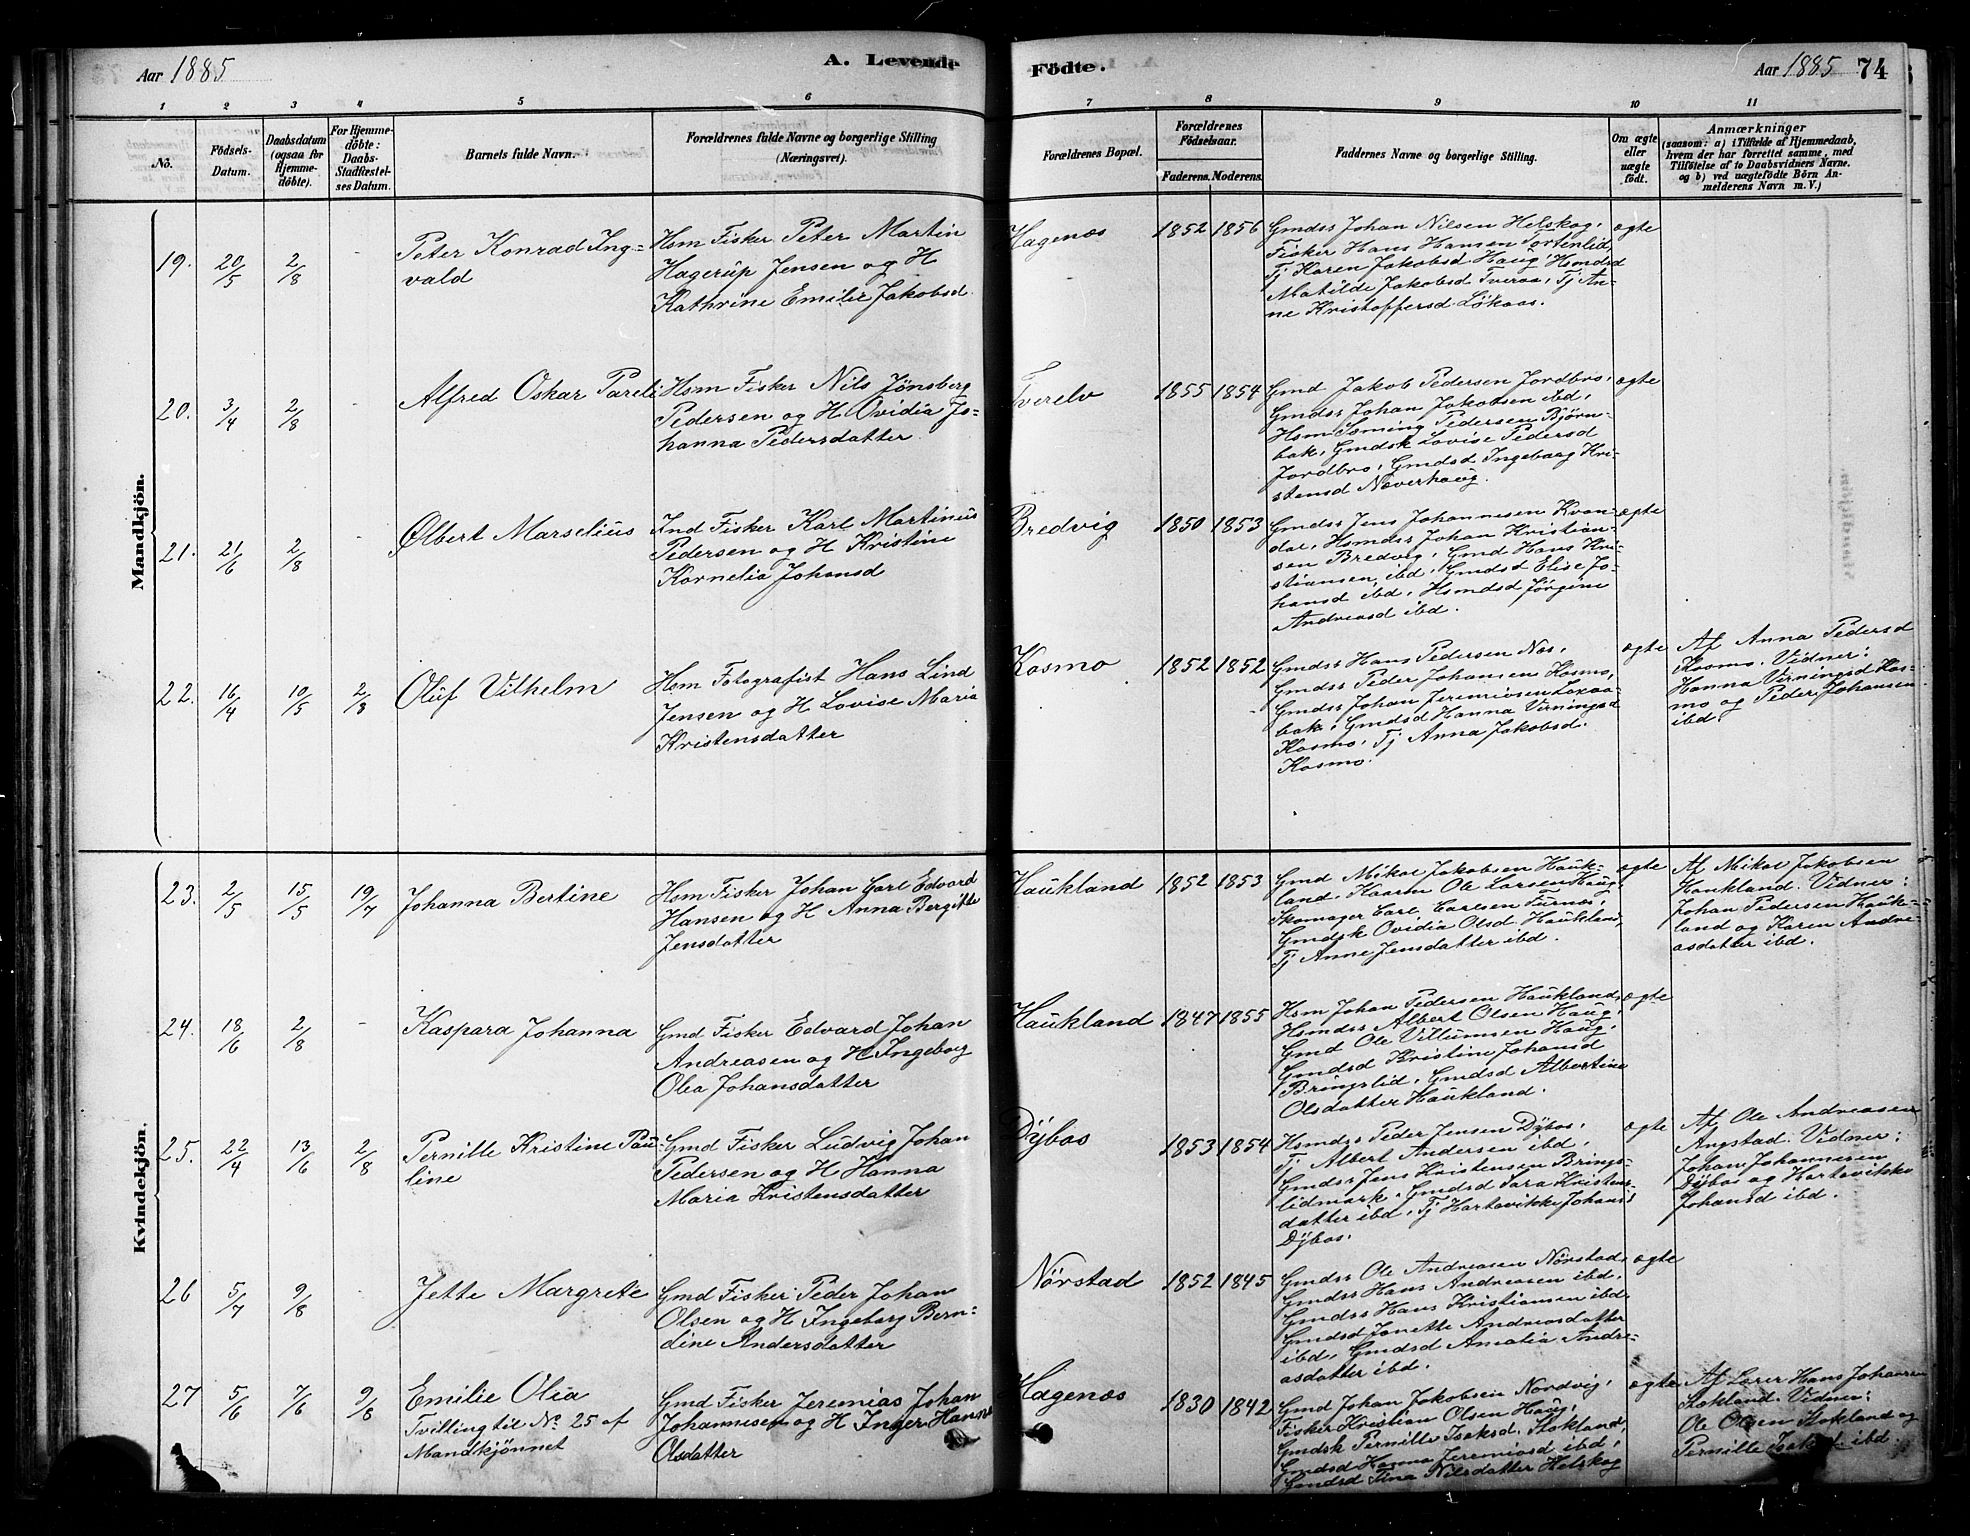 Aar 1885
A. Levende
Födte.
Aar 1885
74
1 2 3 4 5 6 7 8 9 10 11
No.
Födsels-
Datum.
Daabsdatum
(ogsaa for
Hjemme-
döbte).
For Hjemme-
döbte:
Daabs-
Stadfæstel-
ses Datum.
Barnets fulde Navn.
Forældrenes fulde Navne og borgerlige Stilling
(Næringsvei).
Forældrenes Bopæl.
Forældrenes
Födselsaar.
Faderens. Moderens.
Faddernes Navne og borgerlige Stilling.
Om ægte
eller
uægte
födt.
Anmærkninger
(saasom: a) i Tilfælde af Hjemmedaab,
hvem der har forrettet samme, med
Tilföielse af to Daabsvidners Navne.
og b) ved uægtefödte Börn An-
melderens Navn m. V.)
Mandkjön.
19. 20/5 2/8 -
Peter Konrad Ing-
vald
Hsm Fisker Peter Martin
Hagerup Jensen og H
Kathrine Emilie Jakobsd.
Hagenæs
1852 1856
Gmdss Johan Nilsen Helskog,
Fisker Hans Hansen Tortenlid,
Tj Karen Jakobsd Haug, Hsmdsd
Matilde Jakobsd Tveraa, Tj An-
ne Kristoffersd Løkaas.
ægte
20. 3/4 2/8 -
Alfred Oskar Pareli
Hsm Fisker Nils Jönsberg
Pedersen og H Ovidia Jo-
hanna Pedersdatter.
Tverelv
1855 1854
Gmd Jakob Pedersen Jordbro,
Gmdss Johan Jakobsen ibd,
Hsm Søming Pedersen Bjørn-
bak, Gmdsk Lovise Pedersd
Jordbro, Gmdsd Ingeborg Kri-
stensd Næverhaug.
ægte
21. 21/6 2/8 -
Ølbert Marselius
Ind Fisker Karl Martinus
Pedersen og H Kristine
Kornelia Johansd
Bredvig
1850 1853
Gmdss Jens Johannesen Kvan-
dal, Hsmdss Johan Kristian-
sen Bredvig, Gmd Hans Kri-
stiansen, ibd, Gmdsd Elise Jo-
hansd ibd, Hsmdsd Jørgine
Andreasd ibd.
ægte
22. 16/4 10/5 2/8
Oluf Vilhelm
Hsm Fotografist Hans Lind
Jensen og H Lovise Maria
Kristensdatter
Kosmo
1852 1852
Gmdss Hans Pedersen Nes,
Gmdss Peder Johansen Kosmo,
Gmdss Johan Jeremiasen Laxaa-
bak, Gmdsd Hanna Verningsd
Kosmo, Tj Anna Jakobsd.
Kosmo.
ægte
Af Anna Pedersd
Kosmo. Vidner:
Hanna Verningsd Kos-
mo og Peder Johansen
ibd.
Kvindekjön.
23. 2/5 15/5 19/7
Johanna Bertine
Hsm Fisker Johan Carl Edvard
Hansen og H Anna Bergitte
Jensdatter
Haukland
1852 1853
Gmd Mikal Jakobsen Hauk-
land, Kaarm Ole Larsen Haug,
Skomager Carl Carlsen Furnes,
Gmdsk Ovidia Olsd Haukland,
Tj Anne Jensdatter ibd.
ægte
Af Mikal Jakobsen
Haukland. Vidner:
Johan Pedersen Hauk-
land og Karen Andre-
asdatter ibd.
24. 18/6 2/8 -
Kaspara Johanna
Gmd Fisker Edvard Johan
Andreasen og H Ingeborg
Olea Johansdatter
Haukland
1847 1855
Hsm Johan Pedersen Haukland,
Hsmdss Albert Olsen Haug,
Gmd Ole Villumsen Haug,
Gmdsd Kristine Johansd
Bringslid, Gmdsd Albertine
Olsdatter Haukland.
ægte
25. 22/4 13/6 2/8
Pernille Kristine Pau-
line
Gmd Fisker Ludvig Johan
Pedersen og H Hanna
Maria Kristensdatter
Dybos
1853 1854
Hsmdss Peder Jensen Dybos,
Tj Albert Andersen ibd,
Gmdss Jens Kristensen Brings-
lidmark, Gmdsd Sara Kristens-
datter ibd, Tj Hartavikke Johansd
Dybos.
ægte
Af Ole Andreasen
Angstad. Vidner:
Johan Johannesen
Dybos og Hartavikke
Johansd ibd.
26 5/7 9/8 -
Jette Margrete
Gmd Fisker Peder Johan
Olsen og H Ingeborg Bern-
dine Andersdatter
Nørstad
1852 1845
Gmdss Ole Andreasen Nørstad,
Gmdss Hans Andreasen ibd,
Gmdss Hans Kristiansen ibd,
Gmdsd Janette Andreasdatter
ibd, Gmdsd Amalia Andre-
asdatter ibd.
ægte
27 5/6 7/6 9/8
Emilie Olea
Tvilling til No. 25 af
Mandkjønnet
Gmd Fisker Jeremias Johan
Johannesen og H Inger Hanna
Olsdatter
Hagenæs
1830 1842
Gmd Johan Jakobsen Nordvig,
Fisker Kristian Olsen Haug,
Gmdsk Pernille Isaksd. Stokland,
Gmdsd Hanna Jeremiasd ibd,
Gmdsd Tina Nilsdatter Helskog
ægte
Af Lærer Hans Johansen
Stokland. Vidner:
Ole Olsen Stokland og
Pernille Isaksd ibd.